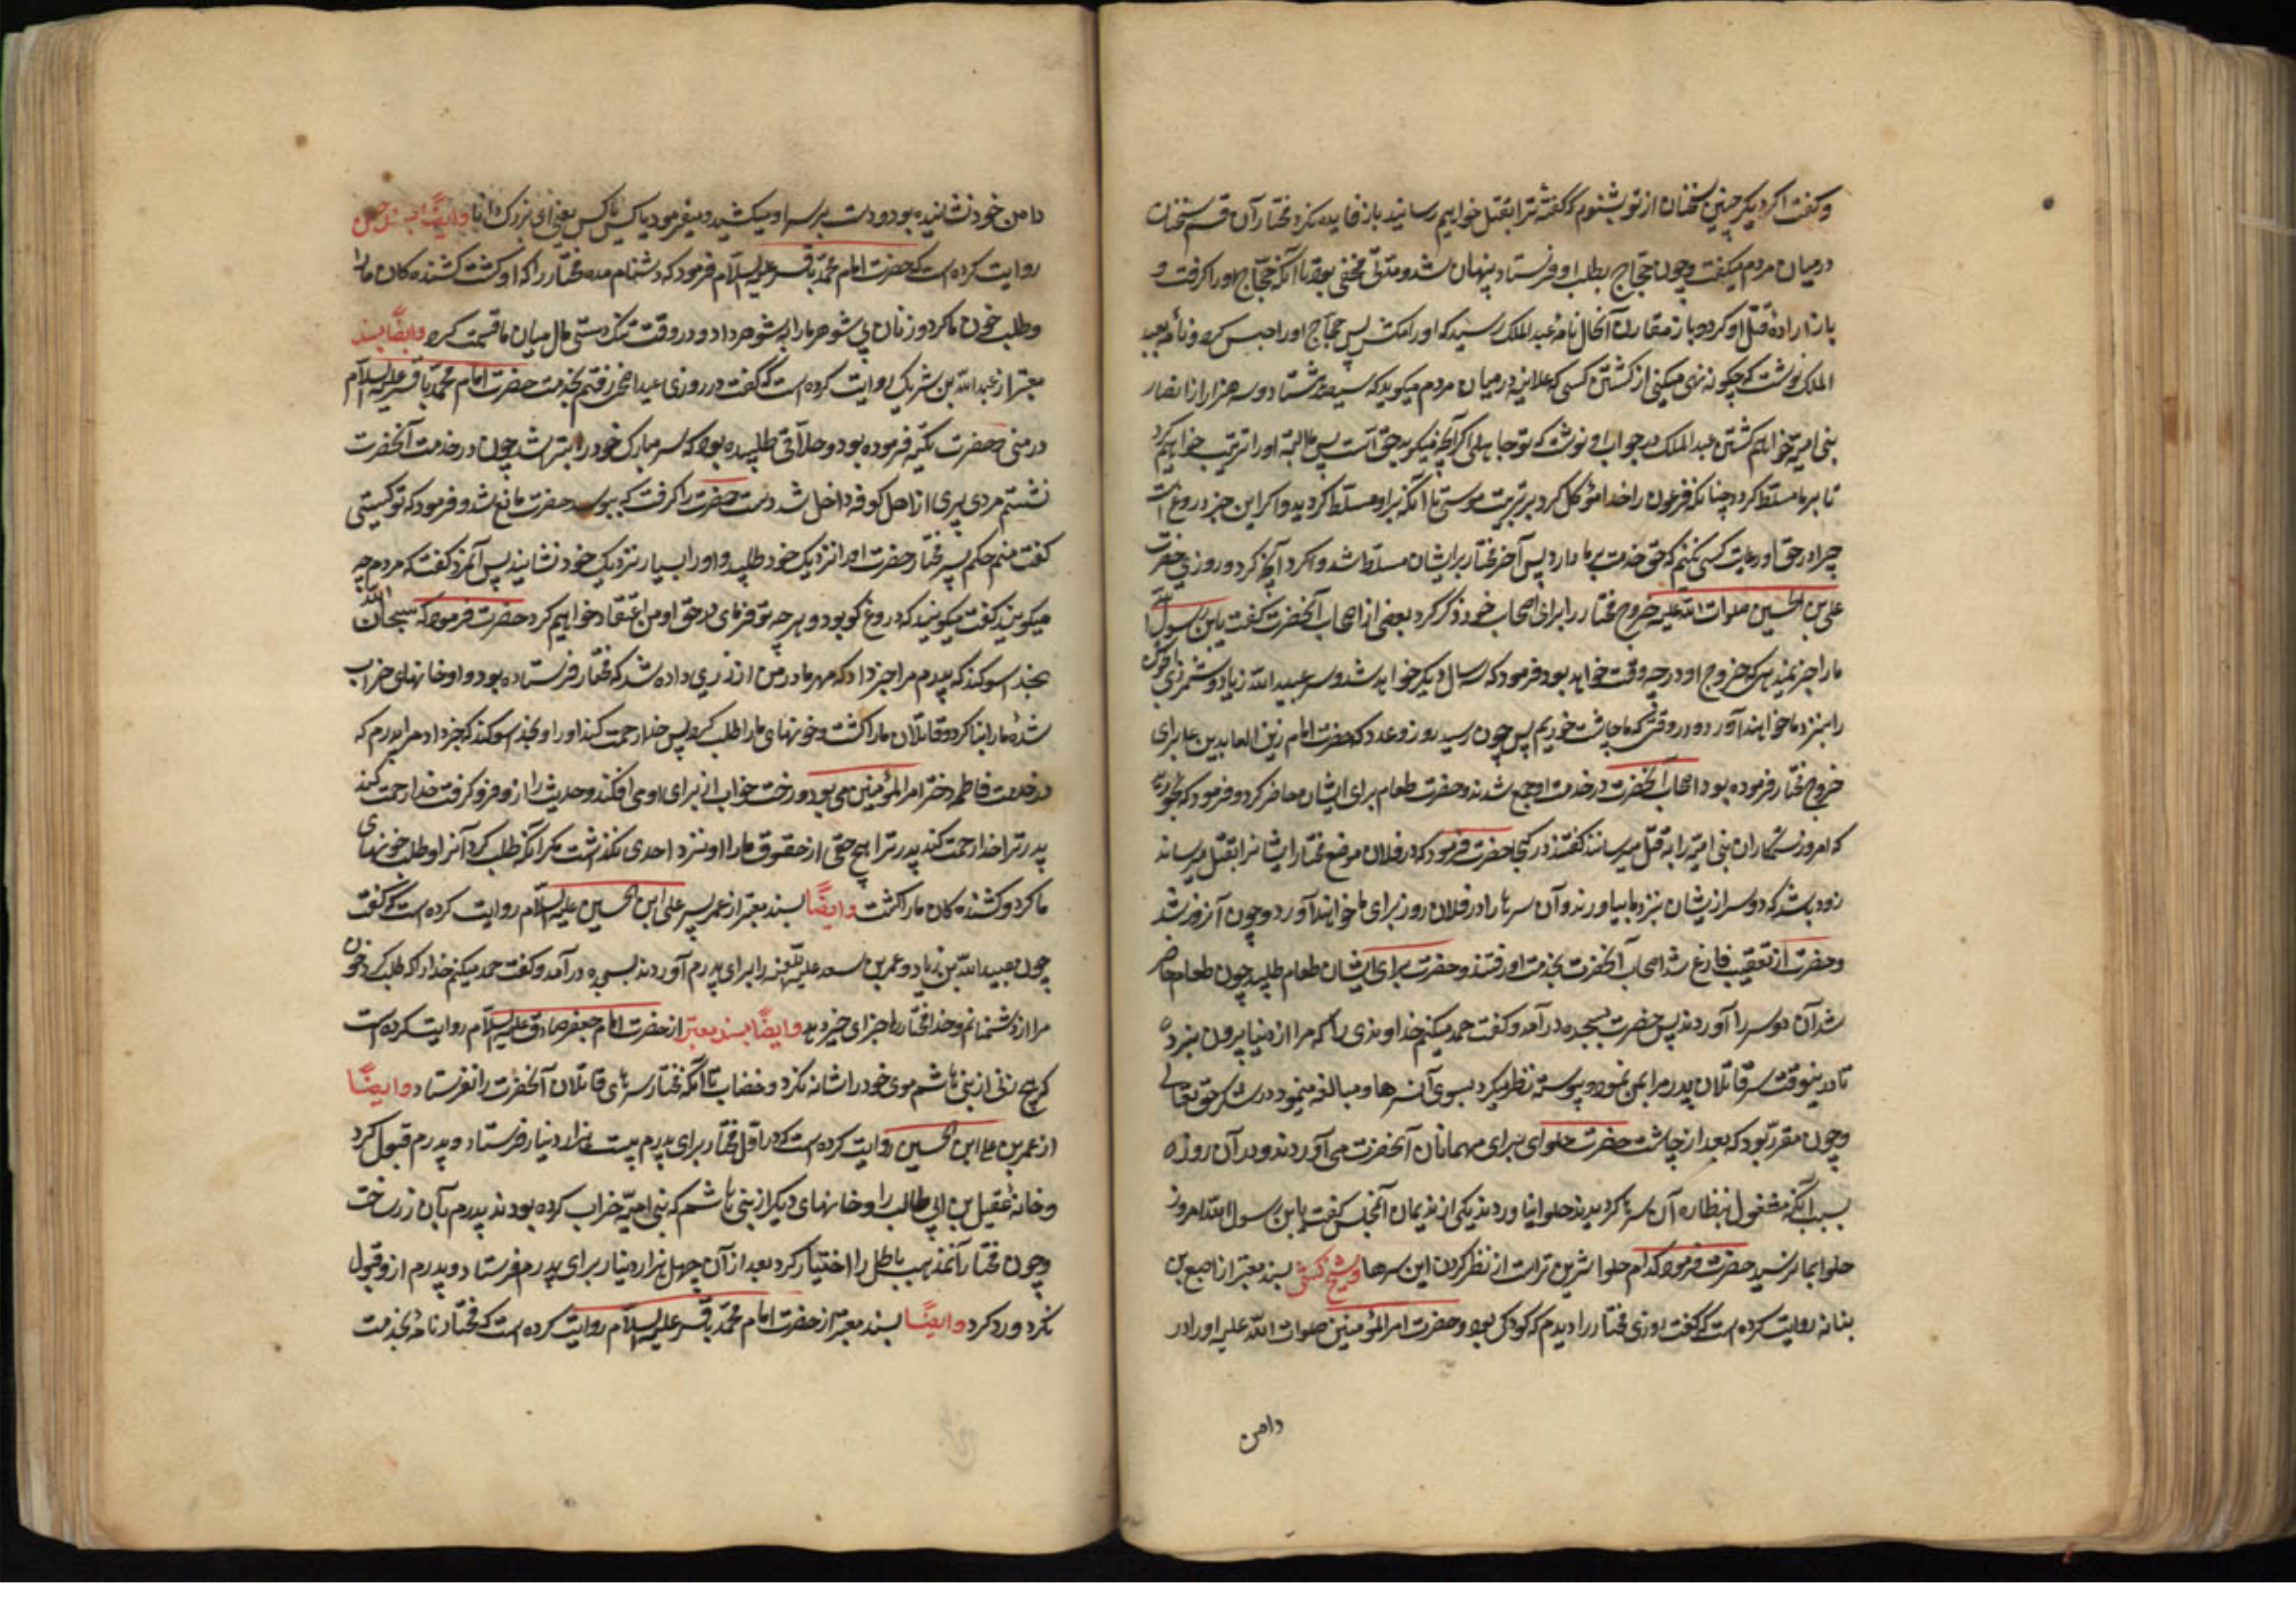 و گفت اگر دیگر چنین سخنان از تو بشنوم که گفتهٔ ترا بقتل خواهیم رسانید باز فایده نکرد مختار آن قسم سخنان
در میان مردم میگفت و چون حجاج بطلب او فرستاد پنهان شد و مدتی مخفی بود تا آنکه حجّاج او را گرفت و
باز اراده قتل او کرد و باز مقارن آنحال نامه عبد الملک رسید که او را مکش پس حجاج او را حبس کرد و نامه بعبد
الملک نوشت که چگونه نهی میکنی از کشتن کسی که علانیه در میان مردم میگوید که سیصد و هشتاد و سه هزار از انصار
بنی امیه خواهم کشت عبد الملک در جواب او نوشت که تو جاهلی اگر آنچه میگوید حق است پس البته او را تربیت خواهیم کرد
تا بر ما مسلّط گردد چنانکه فرعون را خدا مؤکل کرد بر تربیت موسی تا آنکه بر او مسلط گردید و اگر این خبر دروغ است
چرا در حق او رعایت کسی نکنیم که حق خدمت بر ما دارد پس آخر مختار بر ایشان مسلّط شد و کرد آنچه کرد و روزی حضرت
علی بن الحسین صلوات الله علیه خروج مختار را برای اصحاب خود ذکر کرد بعضی از اصحاب آنحضرت گفت یا بن رسول الله
ما را خبر نمیدهی که خروج او در چه وقت خواهد بود فرمود که سال دیگر خواهد شد و سر عبید الله زیاد و شمر ذی الجوشن
را بنزد ما خواهند آورد در وقتی که ما چاشت خوریم پس چون رسید روز وعده که حضرت امام زین العابدین ع برای
خروج مختار فرموده بود اصحاب آنحضرت در خدمت او جمع شدند و حضرت طعام برای ایشان حاضر کرد و فرمود که بخورید
که امروز ستمکاران بنی امیّه را به قتل میرسانند گفتند در کجا حضرت فرمود که در فلان موضع مختار ایشانرا بقتل میرساند
زود باشد که دو سر از یشان بنزد ما بیاورند و آن سرها را در فلان روز برای ما خواهند آورد و چون آنروز شد
و حضرت از تعقیب فارغ شد اصحاب آنحضرت بخدمت او رفتند و حضرت برای ایشان طعام طلبید چون طعام حاضر
شد آن دو سر را آوردند پس حضرت بسجده در آمد و گفت حمد میکنم خداوندی را که مرا از دنیا بیرون نبرده
تا در ینوقت سر قاتلان پدر مرا بمن نمود و پیوسته نظر میکرد بسوی آن سرها و مبالغه مینمود در شکر حق تعالی
و چون مقرّر بود که بعد از چاشت حضرت حلوای برای مهمانان آنحضرت می آوردند و در آن روزه
بسبب آنکه مشغول بنظاره آن سرها گردیدند حلوا نیاوردند یکی از ندیمان آنمجلس گفت یا بن رسول الله امروز
حلوا بما نرسید حضرت فرمود کدام حلوا شیرین تر است از نظر کردن این سرها و شیخ کشی بسند معتبر از اصبغ بن
بناته روایت کرده است که گفت روزی مختار را دیدم که کودکی بود و حضرت امیر المؤمنین صلوات الله علیه او را در
دامن
دامن خود نشانیده بود و دست بر سر او میکشید و میفرمود یا کیس یا کیس یعنی ای زیرک دانا وایضًا بسند حسن
روایت کرده است که حضرت امام محمّد باقر علیه السّلام فرمود که دشنام مده مختار را که او کشت کشنده کان ما را
و طلب خون ما کرد و زنان بی شوهر ما را به شوهر داد و در وقت تنک دستی مال میان ما قسمت کرد وایضًا بسند
معتبر از عبد الله بن شریک روایت کرده است که گفت در روزی عید اضحی رفتم بخدمت حضرت امام محمّد باقر علیه السّلام
در منی حضرت تکیه فرموده بود و حلّاقی طلبیده بود که سر مبارک خود را بتراشد چون در خدمت آنحضرت
نشستم مردی پیری از اهل کوفه داخل شد دست حضرت را گرفت که ببوسد حضرت مانع شد و فرمود که تو کیستی
گفت منم حکم پسر مختار حضرت او را نزدیک خود طلبید و او را بسیار نزدیک خود نشانید پس آنمرد گفت که مردم چه
میگویند گفت میگویند که دروغ گو بود و هر چه تو فرمای در حق او من اعتقاد خواهم کرد حضرت فرمود که سبحان الله
بخدا سوکند که پدرم مرا خبر داد که مهر مادر من از زری داده شد که مختار فرستاده بود و او خانهای خراب
شدهٔ ما را بنا کرد و قاتلان ما را کشت و خونهای ما را طلب کرد پس خدا رحمت کند او را و بخدا سوکند که خبر داد مرا پدرم که
در خدمت فاطمه دختر امیر المؤمنین می بود و رخت خواب از برای او می افکند و حدیث را از و فرو گرفت خدا رحمت کند
پدر ترا خدا رحمت کند پدر ترا هیچ حقی از حقوق ما را او نزد احدی نگذاشت مگر آنکه طلب کرد آنرا و طلب خونهای
ما کرد و کشنده کان ما را کشت وایضًا بسند معتبر از عمر پسر علی ابن الحسین علیه السّلام روایت کرده است که گفت
چون عبید الله بن زیاد و عمر بن سعد علیه اللّعنه را برای پدرم آوردند بسجده در آمد و گفت حمد میکنم خدا را که طلب کرد خون
مرا از دشمنانم و خدا مختار را جزای خیر دهد وایضًا بسند معتبر از حضرت امام جعفر صادق علیه السّلام روایت کرده است
که هیچ زنی از بنی هاشم موی خود را شانه نکرد و خضاب تا آنکه مختار سرهای قاتلان آنحضرت را نفرستاد وایضًا
از عمر بن علی ابن الحسین روایت کرده است که در اوّل مختار برای پدرم بیست هزار دینار فرستاد و پدرم قبول کرد
و خانهٔ عقیل بن ابی طالب را و خانهای دیگر از بنی هاشم که بنی امیّه خراب کرده بودند پدرم بآن زر ساخت
و چون مختار آنمذهب باطل را اختیار کرد بعد از آن چهل هزار دینار برای پدرم فرستاد و پدرم از و قبول
نکرد و رد کرد وایضًا بسند معتبر از حضرت امام محمّد باقر علیه السّلام روایت کرده است که مختار نامهٔ بخدمت